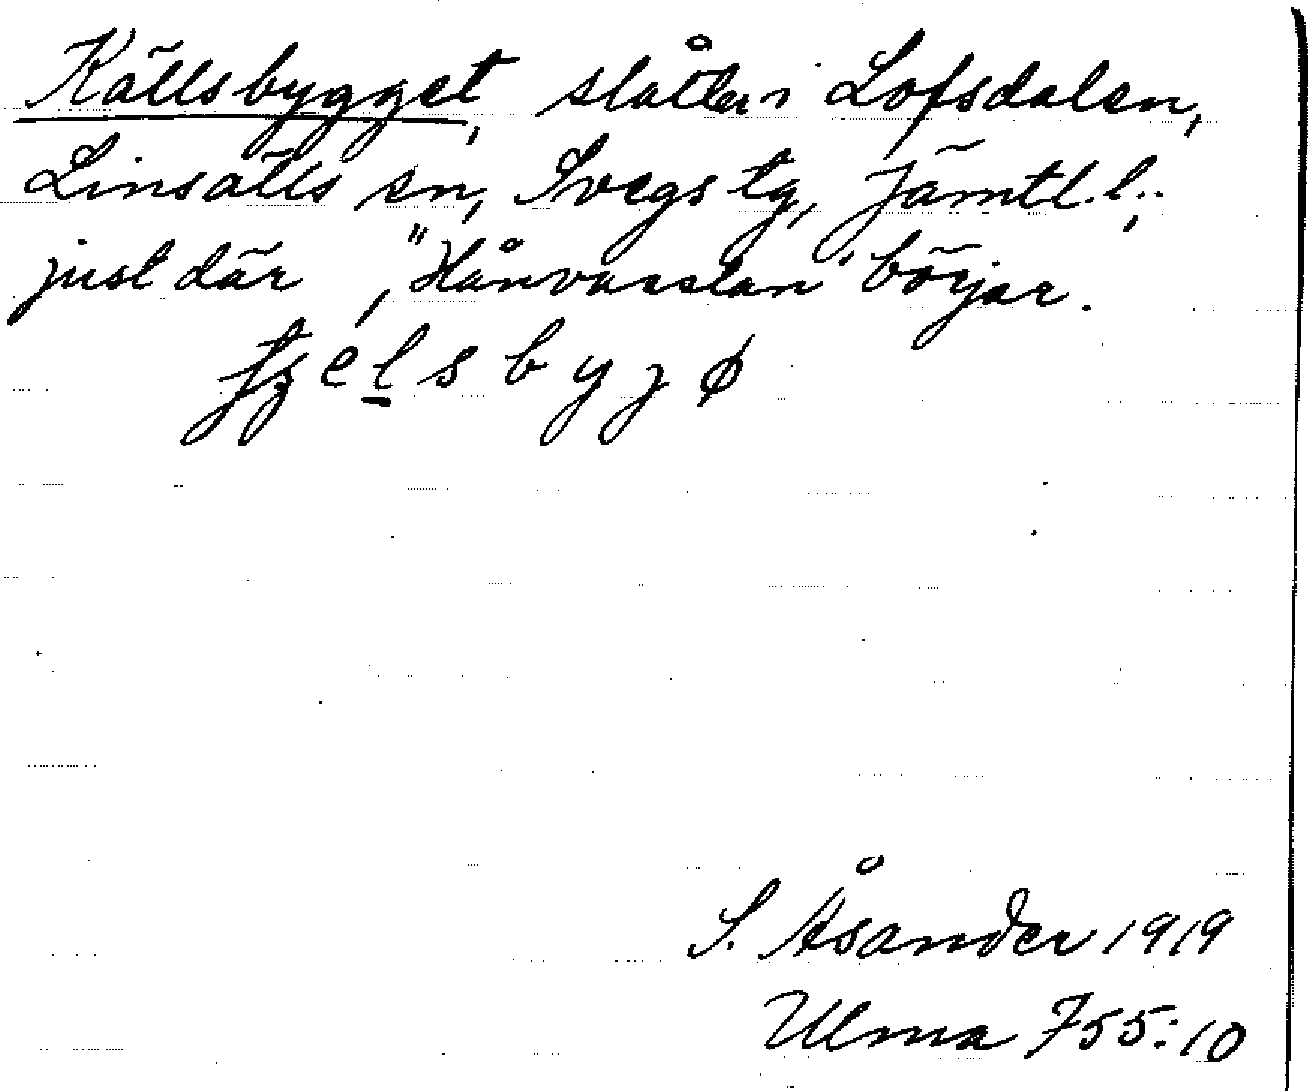 Källsbygget, slåtter i Lofsdalen,
Linsälls sn, Svegs tg, Jämtl. l.;
just där "Hånvasslan" börjar.
S. Åsander 1919
Ulma 755:10